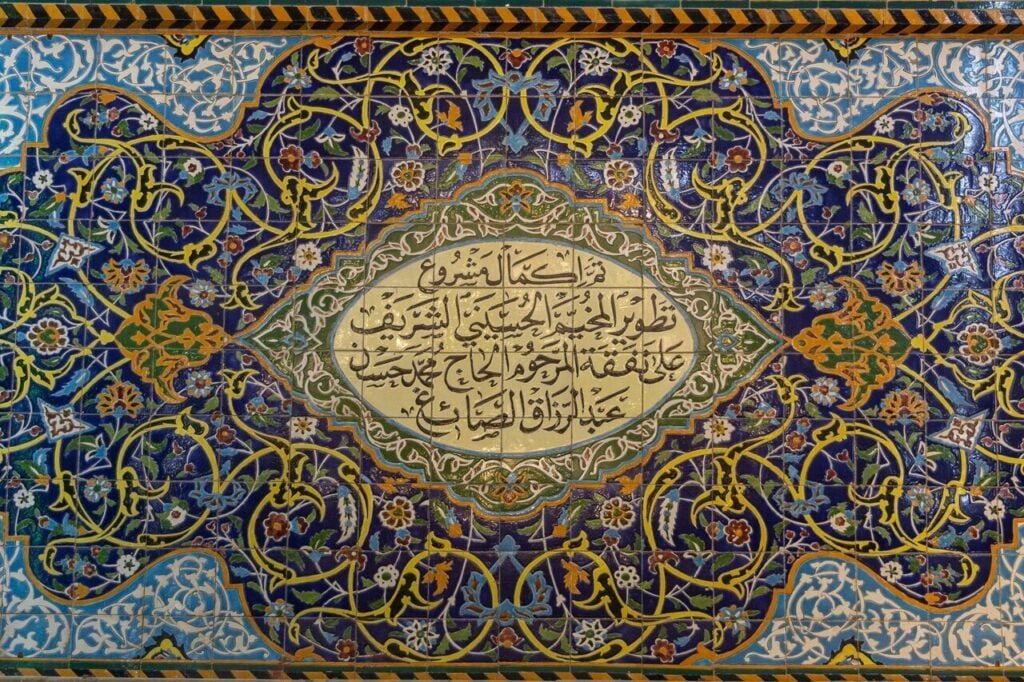 تم إكمال مشروع
تطوير المخيّم الحُسيني الشريف
على نفقة المرحوم الحاج محمد حسان
عبد الرزاق الصائغ